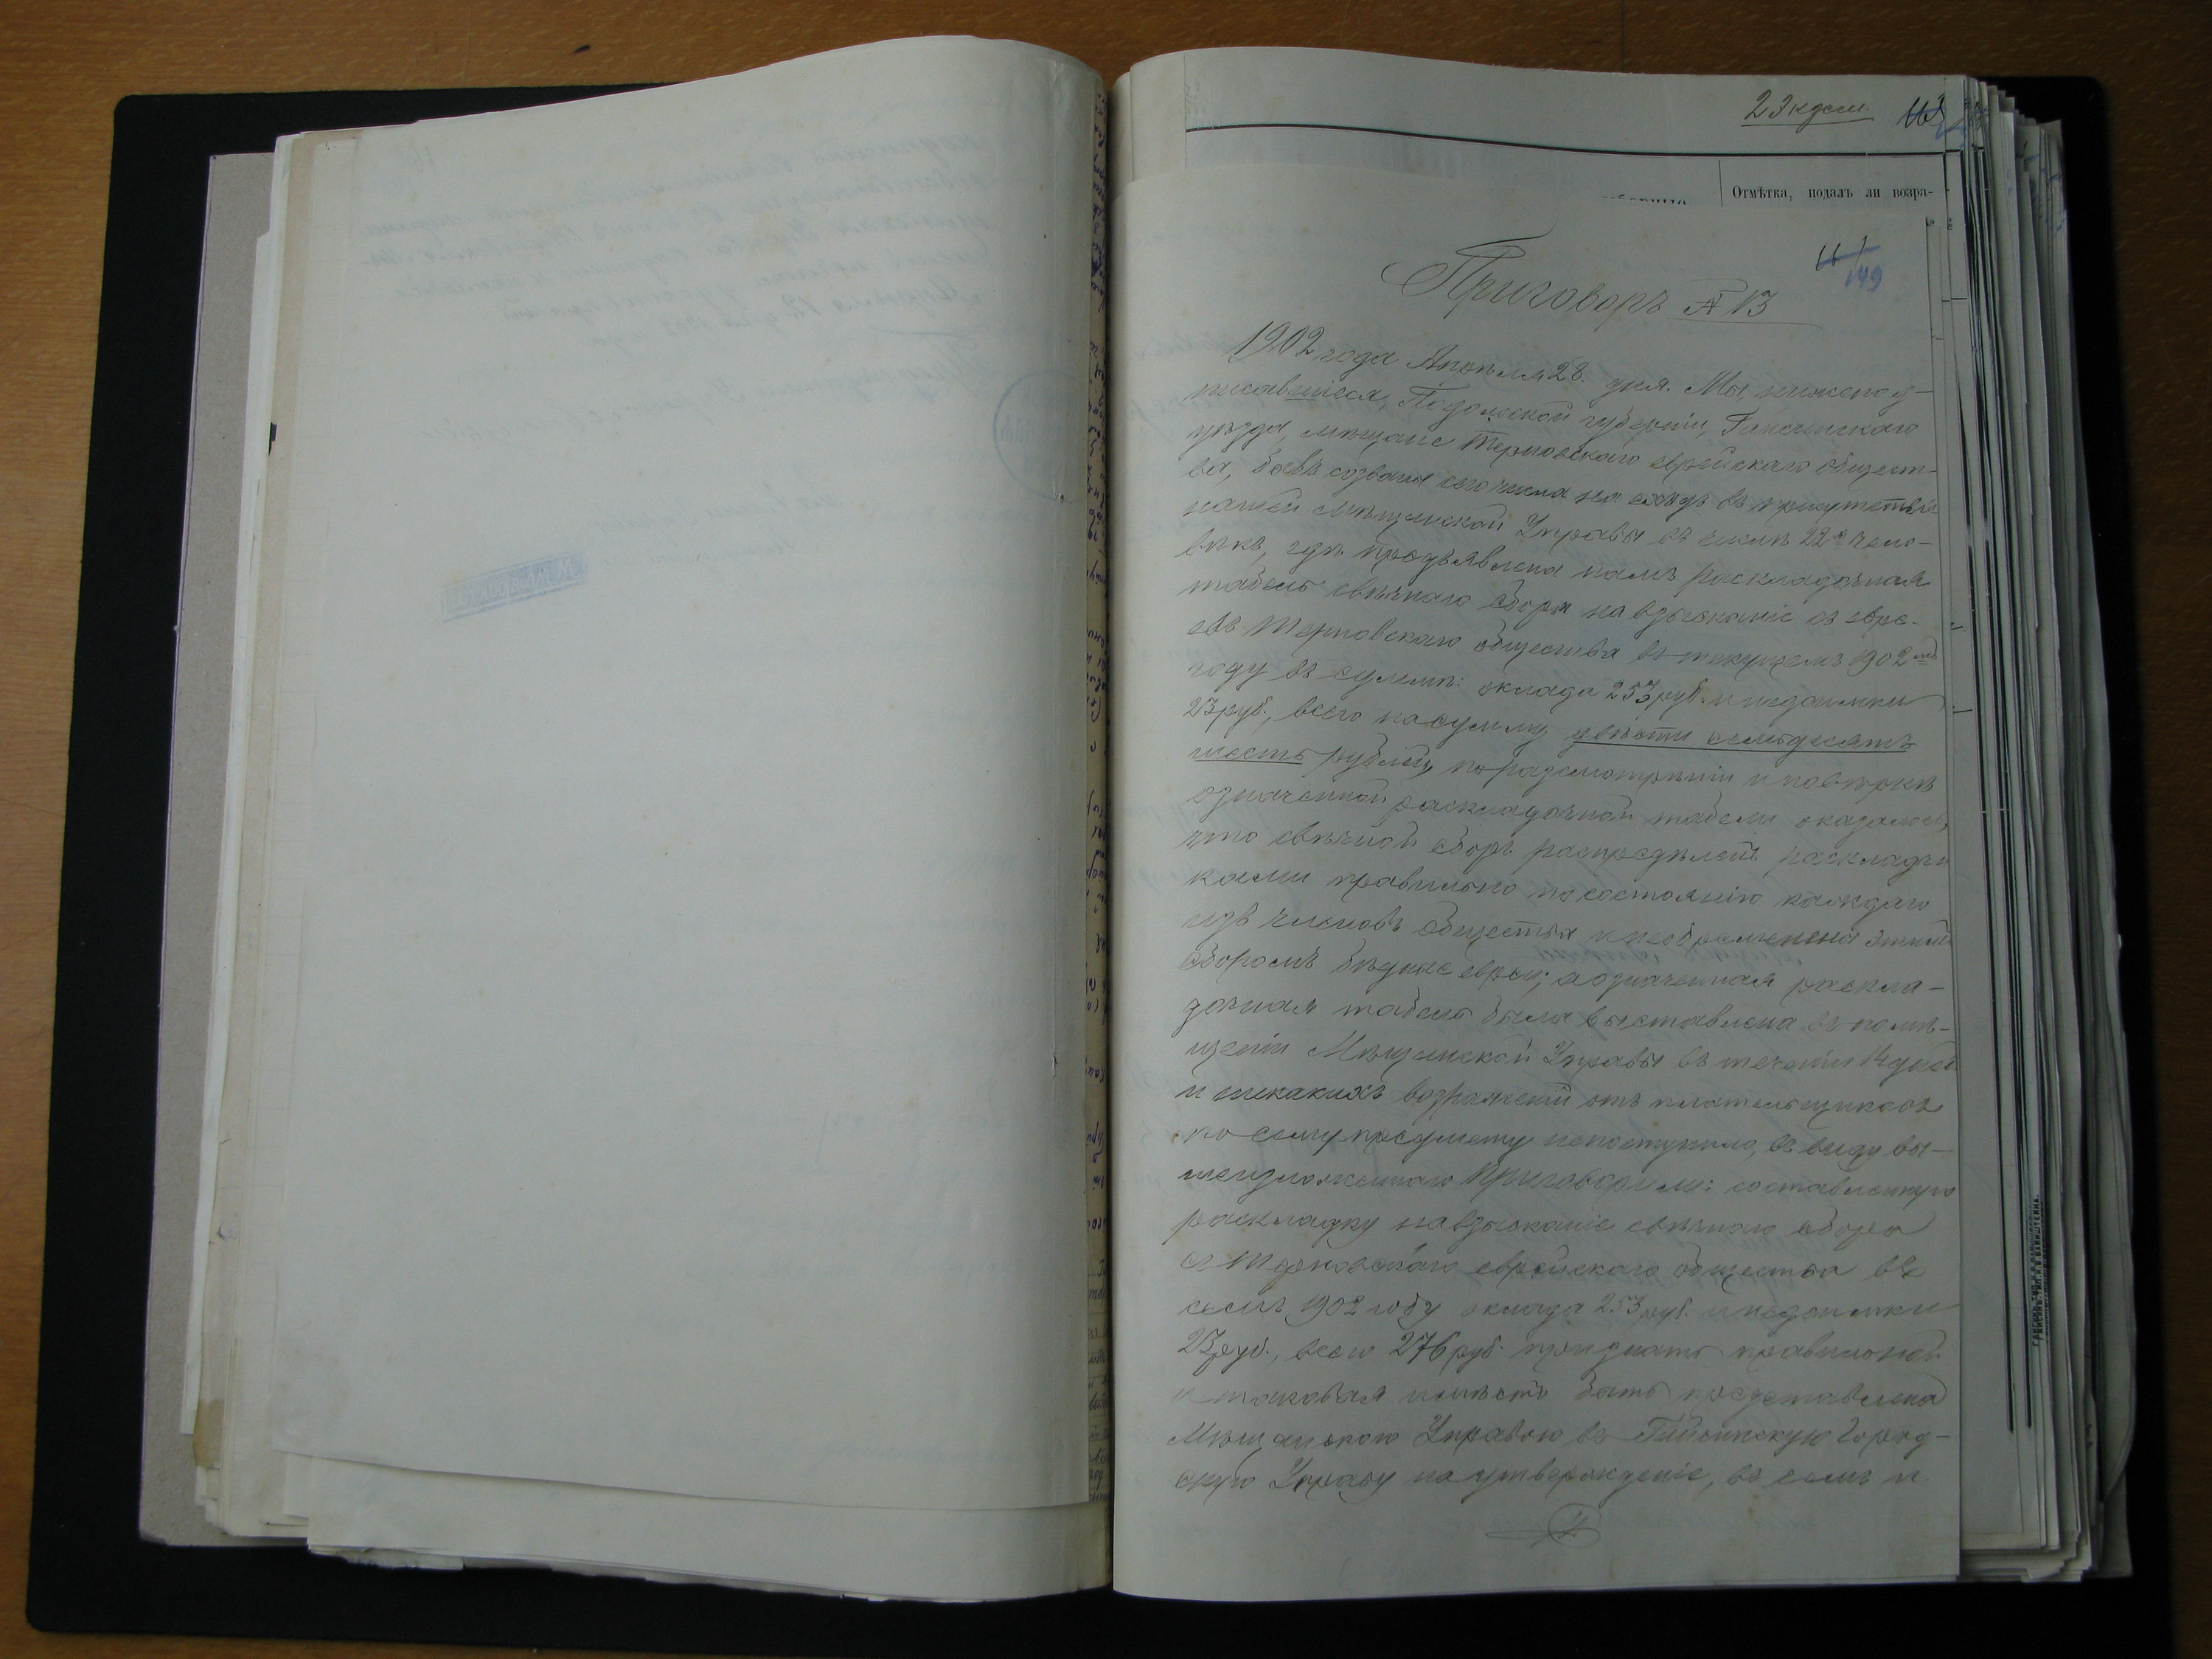 23 кдсм.
Отмѣтка, подалъ ли возра-
149
Приговоръ № 13
1902 года Апрѣля 28 дня. Мы, нижепод-
писавшіеся, Подольской губерніи, Гайсинскаго
уѣзда, мѣщане Терновскаго еврейскаго общест-
ва, бывъ созваны сего числа на сходъ въ присутствіе
нашей Мѣщанской Управы въ числѣ 22х чело-
вѣкъ, гдѣ предъявлена намъ раскладочная
табель свѣчнаго сбора на взысканіе съ евре-
евъ Терновскаго общества въ текущемъ 1902мъ
году въ суммѣ: оклада 253 руб. и недоимки
23 руб., всего на сумму двѣсти семьдесятъ
шесть рублей, по разсмотрѣніи и повѣркѣ
означенной раскладочной табели оказалось,
что свѣчной сборъ распредѣленъ раскладчи
ками правильно по состоянію каждаго
изъ членовъ общества и необременена этимъ
сборомъ бѣдные евреи; а означенная раскла-
дочная табель была выставлена въ помѣ-
щеніи Мѣщанской Управы въ теченіи 14 дней
и никакихъ возраженій отъ плательщиковъ
по сему предмету непоступило, въ виду вы-
шеизложеннаго приговорили: составленную
раскладку на взысканіе свѣчнаго сбора
съ Терновскаго еврейскаго общества въ
семъ 1902 году оклада 253 руб. и недоимки
23 руб., всего 276 руб. признать правильной
и таковая имѣетъ быть представлена
Мѣщанскою Управою въ Гайсинскую Город-
скую Управу на утвержденіе, въ семъ и